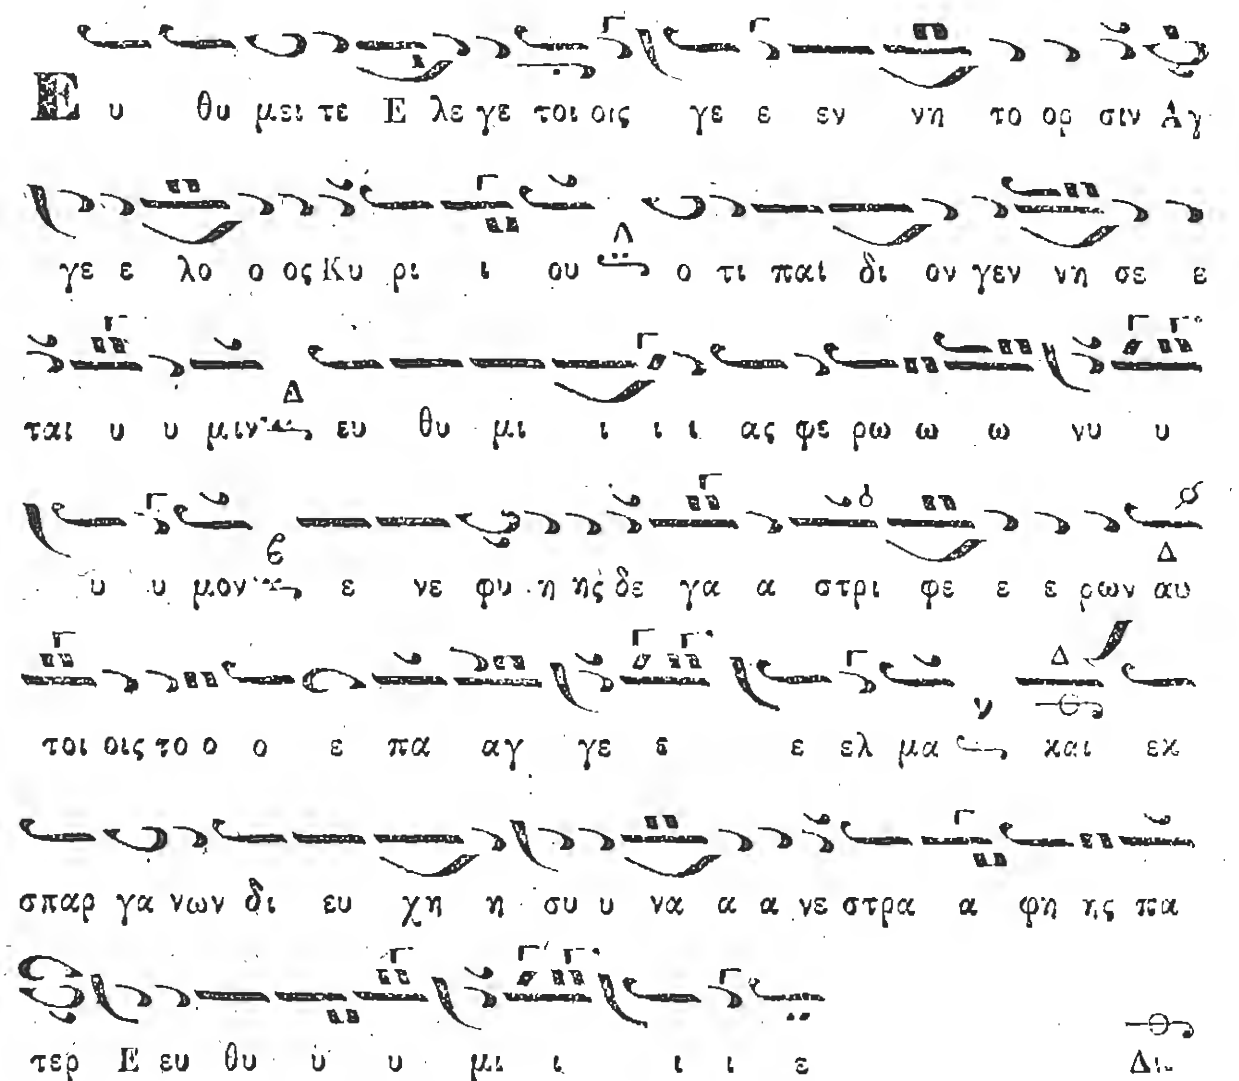 Ευ θυ μει τε Ε λε γε τοι οις γε ε εν νη το ορ σιν Αγ
γε ε λο ο ος Κυ ρι ι ου ο τι παι δι ον γεν νη σε ε
ται υ υ μιν ευ θυ μι ι ι ι ας φε ρω ω ω νυ υ
υ υ μον ε νε φυ η ης δε γα α στρι φε ε ε ρων αυ
τοι οις το ο ο ε πα αγ γε ε ε ελ μα και εκ
σπαρ γα νων δι ευ χη η συ υ να α α νε στρα α φη ης πα
τερ Ε ευ θυ υ υ μι ι ι ι ε Δι